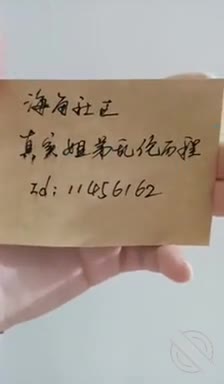 海角社区
真实姐弟乱伦历程
id：11456162